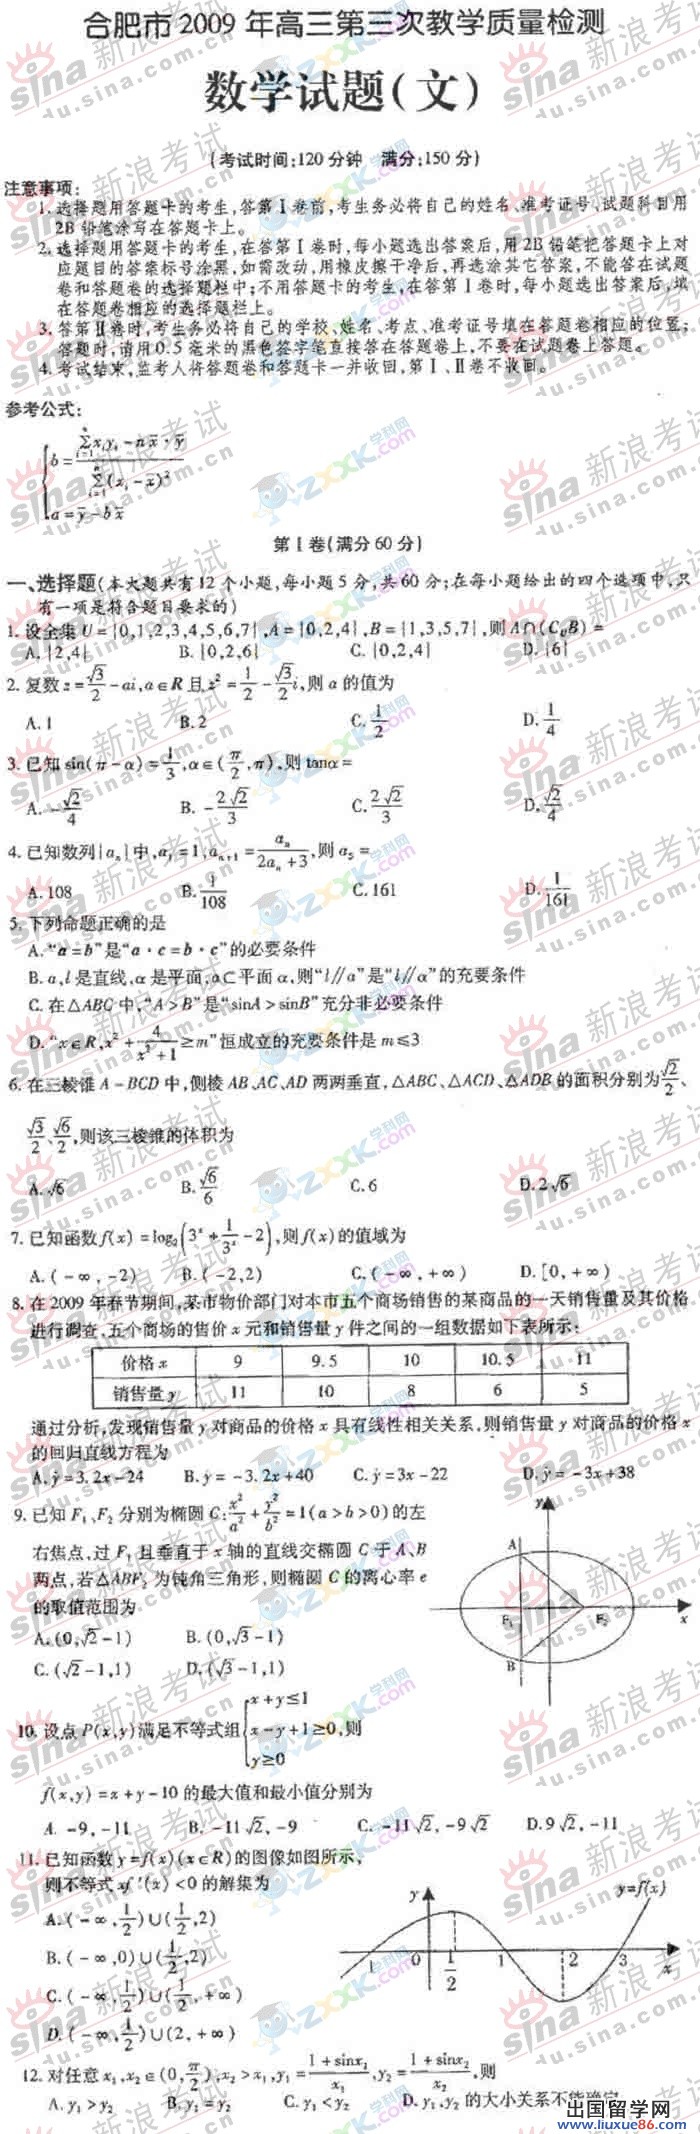 合肥市2009年高三第三次教学质量检测
数学试题(文)
(考试时间:120分钟 满分:150分)
注意事项:
1. 选择题用答题卡的考生,答第Ⅰ卷前,考生务必将自己的姓名、准考证号、试题科目用
2B铅笔涂写在答题卡上。
2. 选择题用答题卡的考生,在答第Ⅰ卷时,每小题选出答案后,用2B铅笔把答题卡上对
应题目的答案标号涂黑,如需改动,用橡皮擦干净后,再选涂其它答案,不能答在试题
卷和答题卷的选择题栏中;不用答题卡的考生,在答第Ⅰ卷时,每小题选出答案后,填
在答题卷相应的选择题栏上。
3. 答第Ⅱ卷时,考生务必将自己的学校、姓名、考点、准考证号填在答题卷相应的位置;
答题时,请用0.5毫米的黑色签字笔直接答在答题卷上,不要在试题卷上答题。
4. 考试结束,监考人将答题卷和答题卡一并收回,第Ⅰ、Ⅱ卷不收回。
参考公式:
b=(∑x_i y_i - n x̄·ȳ)/(∑(x_i - x̄)²)
a=ȳ-b x̄
第Ⅰ卷(满分60分)
一、选择题(本大题共有12个小题,每小题5分,共60分;在每小题给出的四个选项中,只
有一项是符合题目要求的)
1. 设全集U={0,1,2,3,4,5,6,7},A={0,2,4},B={1,3,5,7},则A∩(C_U B)=
A. {2,4} B. {0,2,6} C. {0,2,4} D. {6}
2. 复数z=√3/2-ai,a∈R且z²=1/2-√3/2 i,则a的值为
A. 1 B. 2 C. 1/2 D. 1/4
3. 已知sin(π-α)=1/3,α∈(π/2,π),则tanα=
A. -√2/4 B. -2√2/3 C. 2√2/3 D. √2/4
4. 已知数列{a_n}中,a_1=1,a_{n+1}=a_n/(2a_n+3),则a_5=
A. 108 B. 1/108 C. 161 D. 1/161
5. 下列命题正确的是
A. “a=b”是“a·c=b·c”的必要条件
B. a,l是直线,α是平面,a⊂平面α,则“l∥a”是“l∥α”的充要条件
C. 在△ABC中,“A>B”是“sinA>sinB”充分非必要条件
D. “x∈R,x²+4/(x²+1)≥m”恒成立的充要条件是m≤3
6. 在三棱锥A-BCD中,侧棱AB、AC、AD两两垂直,△ABC、△ACD、△ADB的面积分别为√2/2、
√3/2、√6/2,则该三棱锥的体积为
A. √6 B. √6/6 C. 6 D. 2√6
7. 已知函数f(x)=log₂(3^x+1/3^x-2),则f(x)的值域为
A. (-∞,-2) B. (-2,2) C. (-∞,+∞) D. [0,+∞)
8. 在2009年春节期间,某市物价部门对本市五个商场销售的某商品的一天销售量及其价格
进行调查,五个商场的售价x元和销售量y件之间的一组数据如下表所示:
价格x 9 9.5 10 10.5 11
销售量y 11 10 8 6 5
通过分析,发现销售量y对商品的价格x具有线性相关关系,则销售量y对商品的价格x
的回归直线方程为
A. ŷ=3.2x-24 B. ŷ=-3.2x+40 C. ŷ=3x-22 D. ŷ=-3x+38
9. 已知F₁、F₂分别为椭圆C:x²/a²+y²/b²=1(a>b>0)的左
右焦点,过F₁且垂直于x轴的直线交椭圆C于A、B
两点,若△ABF₂为钝角三角形,则椭圆C的离心率e
的取值范围为
A. (0,√2-1) B. (0,√3-1)
C. (√2-1,1) D. (√3-1,1)
y
A
F₁
F₂
x
B
10. 设点P(x,y)满足不等式组{x+y≤1 x-y+1≥0,则 y≥0
f(x,y)=x+y-10的最大值和最小值分别为
A. -9,-11 B. -11√2,-9 C. -11√2,-9√2 D. 9√2,-11
11. 已知函数y=f(x)(x∈R)的图像如图所示,
则不等式xf'(x)<0的解集为
A. (-∞,1/2)∪(1/2,2)
B. (-∞,0)∪(1/2,2)
C. (-∞,1/2)∪(1/2,+∞)
D. (-∞,1/2)∪(2,+∞)
y
y=f(x)
1 0 1/2 1 2 3 x
12. 对任意x₁,x₂∈(0,π/2),x₂>x₁,y₁=(1+sinx₁)/x₁,y₂=(1+sinx₂)/x₂,则
A. y₁>y₂ B. y₁=y₂ C. y₁<y₂ D. y₁,y₂的大小关系不能确定
出国留学网
www.liuxue86.com